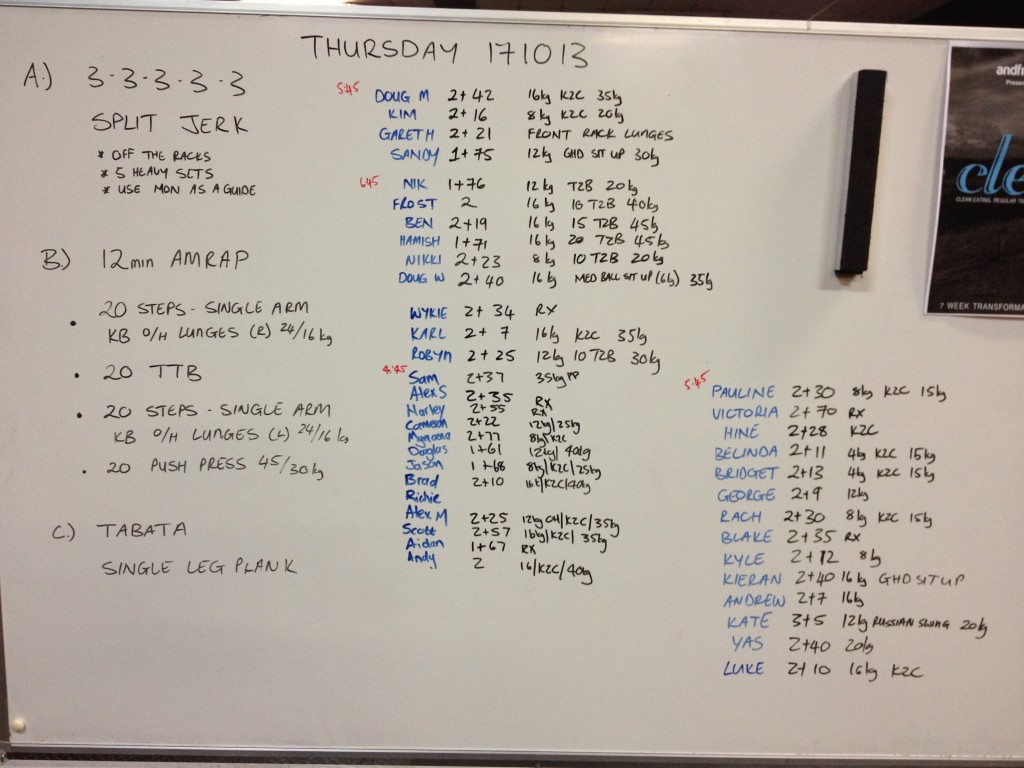 THURSDAY 171013
A.) 3-3-3-3-3
SPLIT JERK
* OFF THE RACKS
* 5 HEAVY SETS
* USE MON AS A GUIDE
B.) 12min AMRAP
• 20 STEPS - SINGLE ARM
KB O/H LUNGES (R) 24/16kg
• 20 TTB
• 20 STEPS - SINGLE ARM
KB O/H LUNGES (L) 24/16kg
• 20 PUSH PRESS 45/30kg
C.) TABATA
SINGLE LEG PLANK
5:45
DOUG M 2+42 16kg K2C 35kg
KIM 2+16 8kg K2C 20kg
GARETH 2+21 FRONT RACK LUNGES
SANDY 1+75 12kg GHD SIT UP 30kg
6:45
NIK 1+76 12kg T2B 20kg
FROST 2 16kg 10 T2B 40kg
BEN 2+19 16kg 15 T2B 45kg
HAMISH 1+71 16kg 20 T2B 45kg
NIKKI 2+23 8kg 10 T2B 20kg
DOUG W 2+40 16kg MED BALL SIT UP (6kg) 35kg
WYKIE 2+34 RX
KARL 2+7 16kg K2C 35kg
ROBYN 2+25 12kg 10 T2B 30kg
4:45
Sam 2+37 35kg PP
Alex S 2+35 RX
Morley 2+55 RX
Cameron 2+22 12kg/25kg
2+77 8kg/K2C
Douglas 1+61 12kg/40kg
Jason 1+68 8kg/K2C/25kg
Brad 2+10 16k/K2C/40kg
Richie
Alex M 2+25 12kg OH/K2C/35kg
Scott 2+57 16kg/K2C/35kg
Aidan 1+67 RX
Andy 2 16/K2C/40kg
5:45
PAULINE 2+30 8kg K2C 15kg
VICTORIA 2+70 RX
HINE 2+28 K2C
BELINDA 2+11 4kg K2C 15kg
BRIDGET 2+13 4kg K2C 15kg
GEORGE 2+9 12kg
RACH 2+30 8kg K2C 15kg
BLAKE 2+35 RX
KYLE 2+12 8kg
KIERAN 2+40 16kg GHD SIT UP
ANDREW 2+7 16kg
KATE 3+5 12kg RUSSIAN SWING 20kg
YAS 2+40 20kg
LUKE 2+10 16kg K2C
andfu
Prese
cle
CLEAN EATING. REGULAR
7 WEEK TRANSFORMA